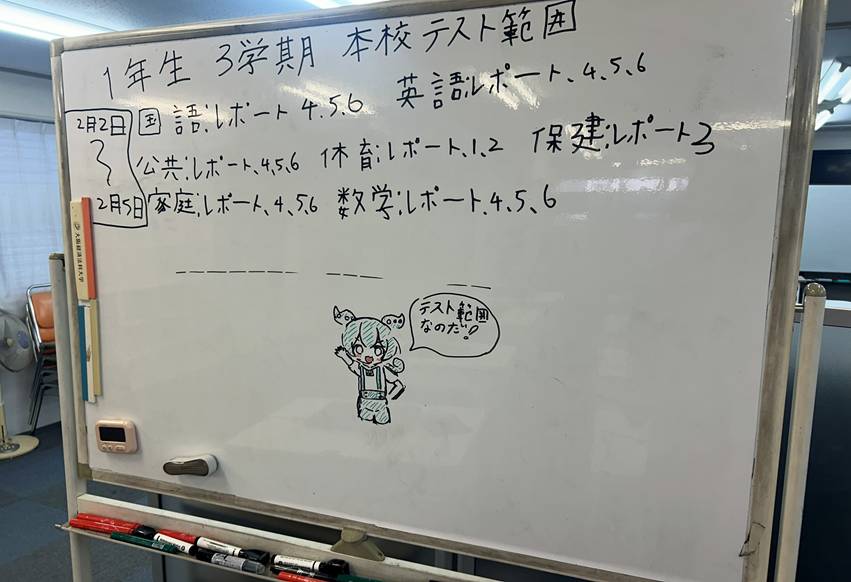 1年生 3学期 本校テスト範囲
2月2日
〜
2月5日
国語:レポート 4、5、6 英語:レポート、4、5、6
公共:レポート、4、5、6 体育:レポート、1、2 保健:レポート3
家庭:レポート、4、5、6 数学:レポート、4、5、6
テスト範囲
なのだ!!
大阪経済法科大学